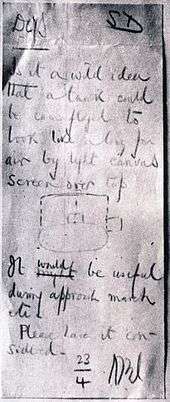 DCGS SD
Is it a wild idea
that a tank could
be camouflaged to
look like a lorry from
air by light canvas
screen over top
It would be useful
during approach march
etc.
Please have it con-
sidered.
23
4